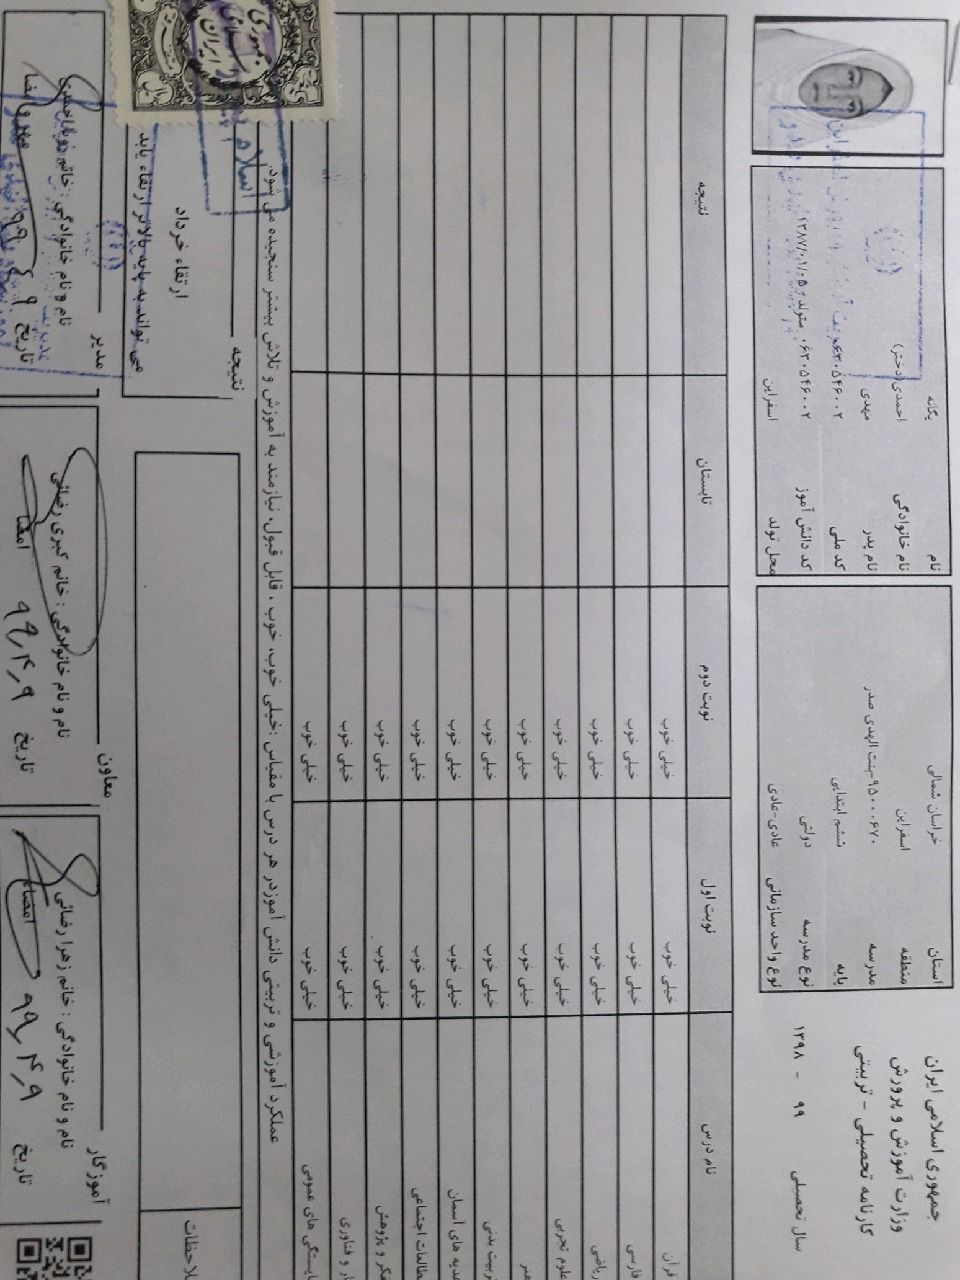 جمهوری اسلامی ایران
وزارت آموزش و پرورش
کارنامه تحصیلی - تربیتی
سال تحصیلی ۹۹ - ۱۳۹۸
استان خراسان شمالی
منطقه اسفراین
مدرسه ۹۵۰۰۰۶۷۰-بنت الهدی صدر
پایه ششم ابتدایی
نوع مدرسه دولتی
نوع واحد سازمانی عادی-عادی
نام یگانه
نام خانوادگی احمدی(دختر)
نام پدر مهدی
کد ملی
کد دانش آموز متولد: ۱۳۸۷/۰۱/۰۵
محل تولد اسفراین
نام درس نوبت اول نوبت دوم تابستان نتیجه
قرآن خیلی خوب خیلی خوب
فارسی خیلی خوب خیلی خوب
ریاضی خیلی خوب خیلی خوب
علوم تجربی خیلی خوب خیلی خوب
هنر خیلی خوب خیلی خوب
تربیت بدنی خیلی خوب خیلی خوب
هدیه های آسمان خیلی خوب خیلی خوب
مطالعات اجتماعی خیلی خوب خیلی خوب
تفکر و پژوهش خیلی خوب خیلی خوب
کار و فناوری خیلی خوب خیلی خوب
شایستگی های عمومی خیلی خوب خیلی خوب
عملکرد آموزشی و تربیتی دانش آموزدر هر درس با مقیاس :خیلی خوب، خوب ، قابل قبول، نیازمند به آموزش و تلاش بیشتر سنجیده می شود.
ملاحظات
نتیجه
ارتقاء خرداد
می تواند به پایه بالاتر ارتقاء یابد
آموزگار
نام و نام خانوادگی : خانم زهرا رضائی
تاریخ ۹۹٫۴٫۹ امضاء
معاون
نام و نام خانوادگی : خانم کبری رضائی
تاریخ ۹۹٫۴٫۹ امضاء
مدیر
نام و نام خانوادگی : خانم
تاریخ